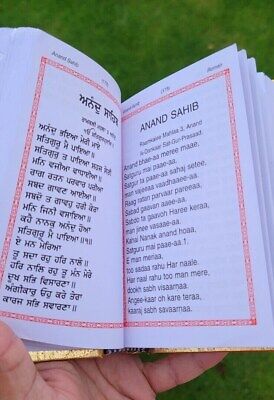 Anand Sahib
ਅਨੰਦੁ ਸਾਹਿਬ
ਰਾਮਕਲੀ ਮਹਲਾ ੩ ਅਨੰਦੁ
ਅਨੰਦੁ ਭਇਆ ਮੇਰੀ ਮਾਏ
ਸਤਿਗੁਰੂ ਮੈ ਪਾਇਆ॥
ਸਤਿਗੁਰੁ ਤ ਪਾਇਆ ਸਹਜ ਸੇਤੀ
ਮਨਿ ਵਜੀਆ ਵਾਧਾਈਆ॥
ਰਾਗ ਰਤਨ ਪਰਵਾਰ ਪਰੀਆ
ਸਬਦ ਗਾਵਣ ਆਈਆ॥
ਸਬਦੋ ਤ ਗਾਵਹੁ ਹਰੀ ਕੇਰਾ
ਮਨਿ ਜਿਨੀ ਵਸਾਇਆ॥
ਕਹੈ ਨਾਨਕੁ ਅਨੰਦੁ ਹੋਆ
ਸਤਿਗੁਰੂ ਮੈ ਪਾਇਆ॥੧॥
ਏ ਮਨ ਮੇਰਿਆ
ਤੂ ਸਦਾ ਰਹੁ ਹਰਿ ਨਾਲੇ॥
ਹਰਿ ਨਾਲਿ ਰਹੁ ਤੂ ਮੰਨ ਮੇਰੇ
ਦੂਖ ਸਭਿ ਵਿਸਾਰਣਾ॥
ਅੰਗੀਕਾਰੁ ਓਹੁ ਕਰੇ ਤੇਰਾ
ਕਾਰਜ ਸਭਿ ਸਵਾਰਣਾ॥
Roman
ANAND SAHIB
Raamkalee Mahlaa 3, Anand
Ik-Oankaar Sat-Gur-Prasaad.
Anand bhae-aa meree maae,
Satguru mai paa-ae-aa.
Satgur ta paa-ae-aa sahaj setee,
man vajeeaa vaadhaaee-aa.
Raag ratan parvaar paree-aa
Sabad gaavan aaee-aa.
Sabdo ta gaavoh Haree keraa,
man jinee vasaae-aa.
Kahai Nanak anand hoaa,
Satguru mai paa-ae-aa.1.
E man meriaa,
too sadaa rahu Har naale.
Har naal rahu too man mere,
dookh sabh visaarnaa.
Angee-kaar oh kare teraa,
kaaraj sabh savaarnaa.